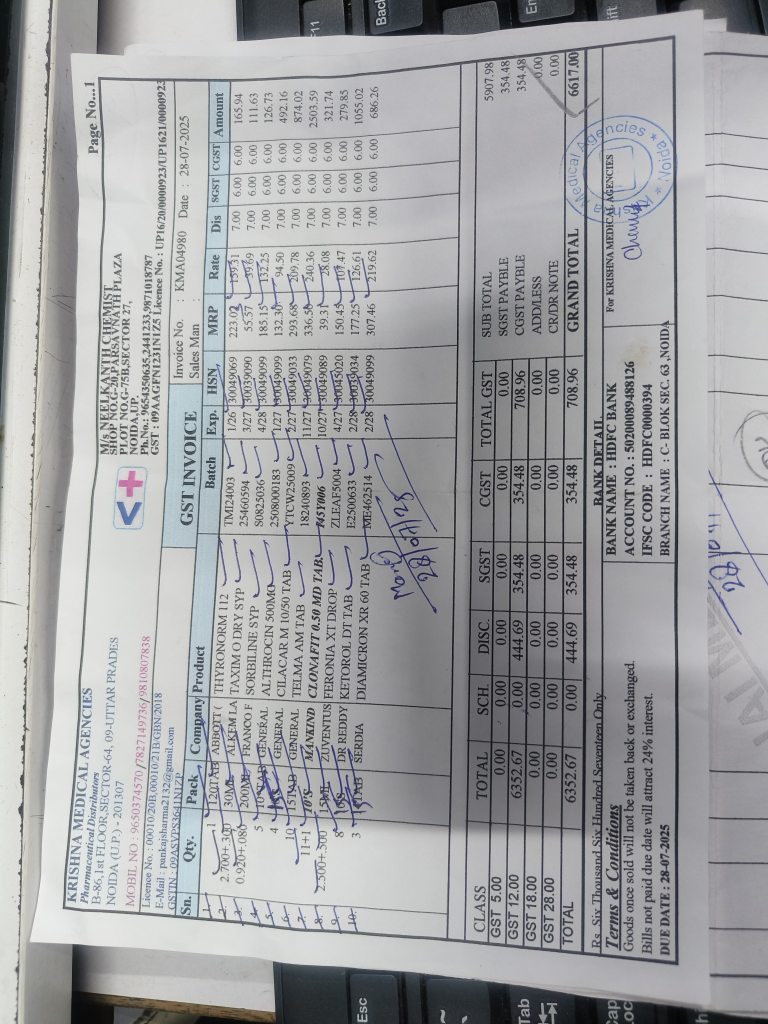 Page No...1
KRISHNA MEDICAL AGENCIES
Pharmaceutical Distributors
B-86,1st FLOOR,SECTOR-64, 09-UTTAR PRADES
NOIDA (U.P.) - 201307
MOBIL NO : 9650374570/7827149736/9810807838
Licence No. : 00010/20B,00010/21B/GBN/2018
E-Mail : pankajsharma2132@gmail.com
GSTIN : 09ASVPS3641N1ZP
M/s NEELKANTH CHEMIST
SHOP NO.G-20,PARSAVNATH PLAZA
PLOT NO.G-75B,SECTOR 27,
NOIDA,UP.
Ph.No.: 9654350635,2441233,9871018787
GST : 09AAGFN1231N1Z5 Licence No. : UP16/20/0000923/UP1621/0000923
GST INVOICE
Invoice No. : KMA04980 Date : 28-07-2025
Sales Man :
Sn. Qty. Pack Company Product Batch Exp. HSN MRP Rate Dis SGST CGST Amount
1. 1 120TAB ABBOTT ( THYRONORM 112 TMI24003 1/26 30049069 223.02 159.31 7.00 6.00 6.00 165.94
2. 2.700+.300 30ML ALKEM LA TAXIM O DRY SYP 25460594 3/27 30039090 55.57 39.69 7.00 6.00 6.00 111.63
3. 0.920+.080 200ML FRANCO F SORBILINE SYP S0825036 4/28 30049099 185.15 132.25 7.00 6.00 6.00 126.73
4. 5 10'STAB GENERAL ALTHROCIN 500MG 2508000183 1/27 30049099 132.30 94.50 7.00 6.00 6.00 492.16
5. 4 GENERAL CILACAR M 10/50 TAB YTCW25009 2/27 30049033 293.68 209.78 7.00 6.00 6.00 874.02
6. 10 15TAB GENERAL TELMA AM TAB 18240893 11/27 30049079 336.50 240.36 7.00 6.00 6.00 2503.59
7. 11+1 10'S MANKIND CLONAFIT 0.50 MD TAB 10/27 30049089 39.31 28.08 7.00 6.00 6.00 321.74
8. 2.500+.500 15ML ZUVENTUS FERONIA XT DROP ZLEAF5004 4/27 30045020 150.45 107.47 7.00 6.00 6.00 279.85
9. 8 DR REDDY KETOROL DT TAB E2500633 2/28 30039034 177.25 126.61 7.00 6.00 6.00 1055.02
10. 3 SERDIA DIAMICRON XR 60 TAB ME462514 2/28 30049099 307.46 219.62 7.00 6.00 6.00 686.26
28/07/25
CLASS TOTAL SCH. DISC. SGST CGST TOTAL GST
GST 5.00 0.00 0.00 0.00 0.00 0.00 0.00
GST 12.00 6352.67 0.00 444.69 354.48 354.48 708.96
GST 18.00 0.00 0.00 0.00 0.00 0.00 0.00
GST 28.00 0.00 0.00 0.00 0.00 0.00 0.00
TOTAL 6352.67 0.00 444.69 354.48 354.48 708.96
SUB TOTAL 5907.98
SGST PAYBLE 354.48
CGST PAYBLE 354.48
ADD/LESS 0.00
CR/DR NOTE 0.00
GRAND TOTAL 6617.00
Rs. Six Thousand Six Hundred Seventeen Only
Terms & Conditions
Goods once sold will not be taken back or exchanged.
Bills not paid due date will attract 24% interest.
DUE DATE : 28-07-2025
BANK DETAIL
BANK NAME : HDFC BANK
ACCOUNT NO. : 50200089488126
IFSC CODE : HDFC0000394
BRANCH NAME : C- BLOK SEC. 63 ,NOIDA
For KRISHNA MEDICAL AGENCIES
Medical Agencies * Noida *
F11
Esc
Tab